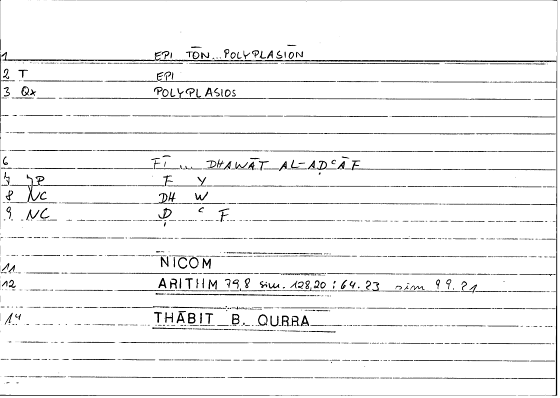 1 EPI TŌN...POLYPLASIŌN
2 T EPI
3 Qx POLYPLASIOS
6 FĪ ... DHAWĀT AL-AḌʿĀF
7 JP F Y
8 NC DH W
9 NC Ḍ ʿ F
11 NICOM
12 ARITHM 79,8 sim. 128,20 : 64.23 sim 99.21
14 THĀBIT B. QURRA